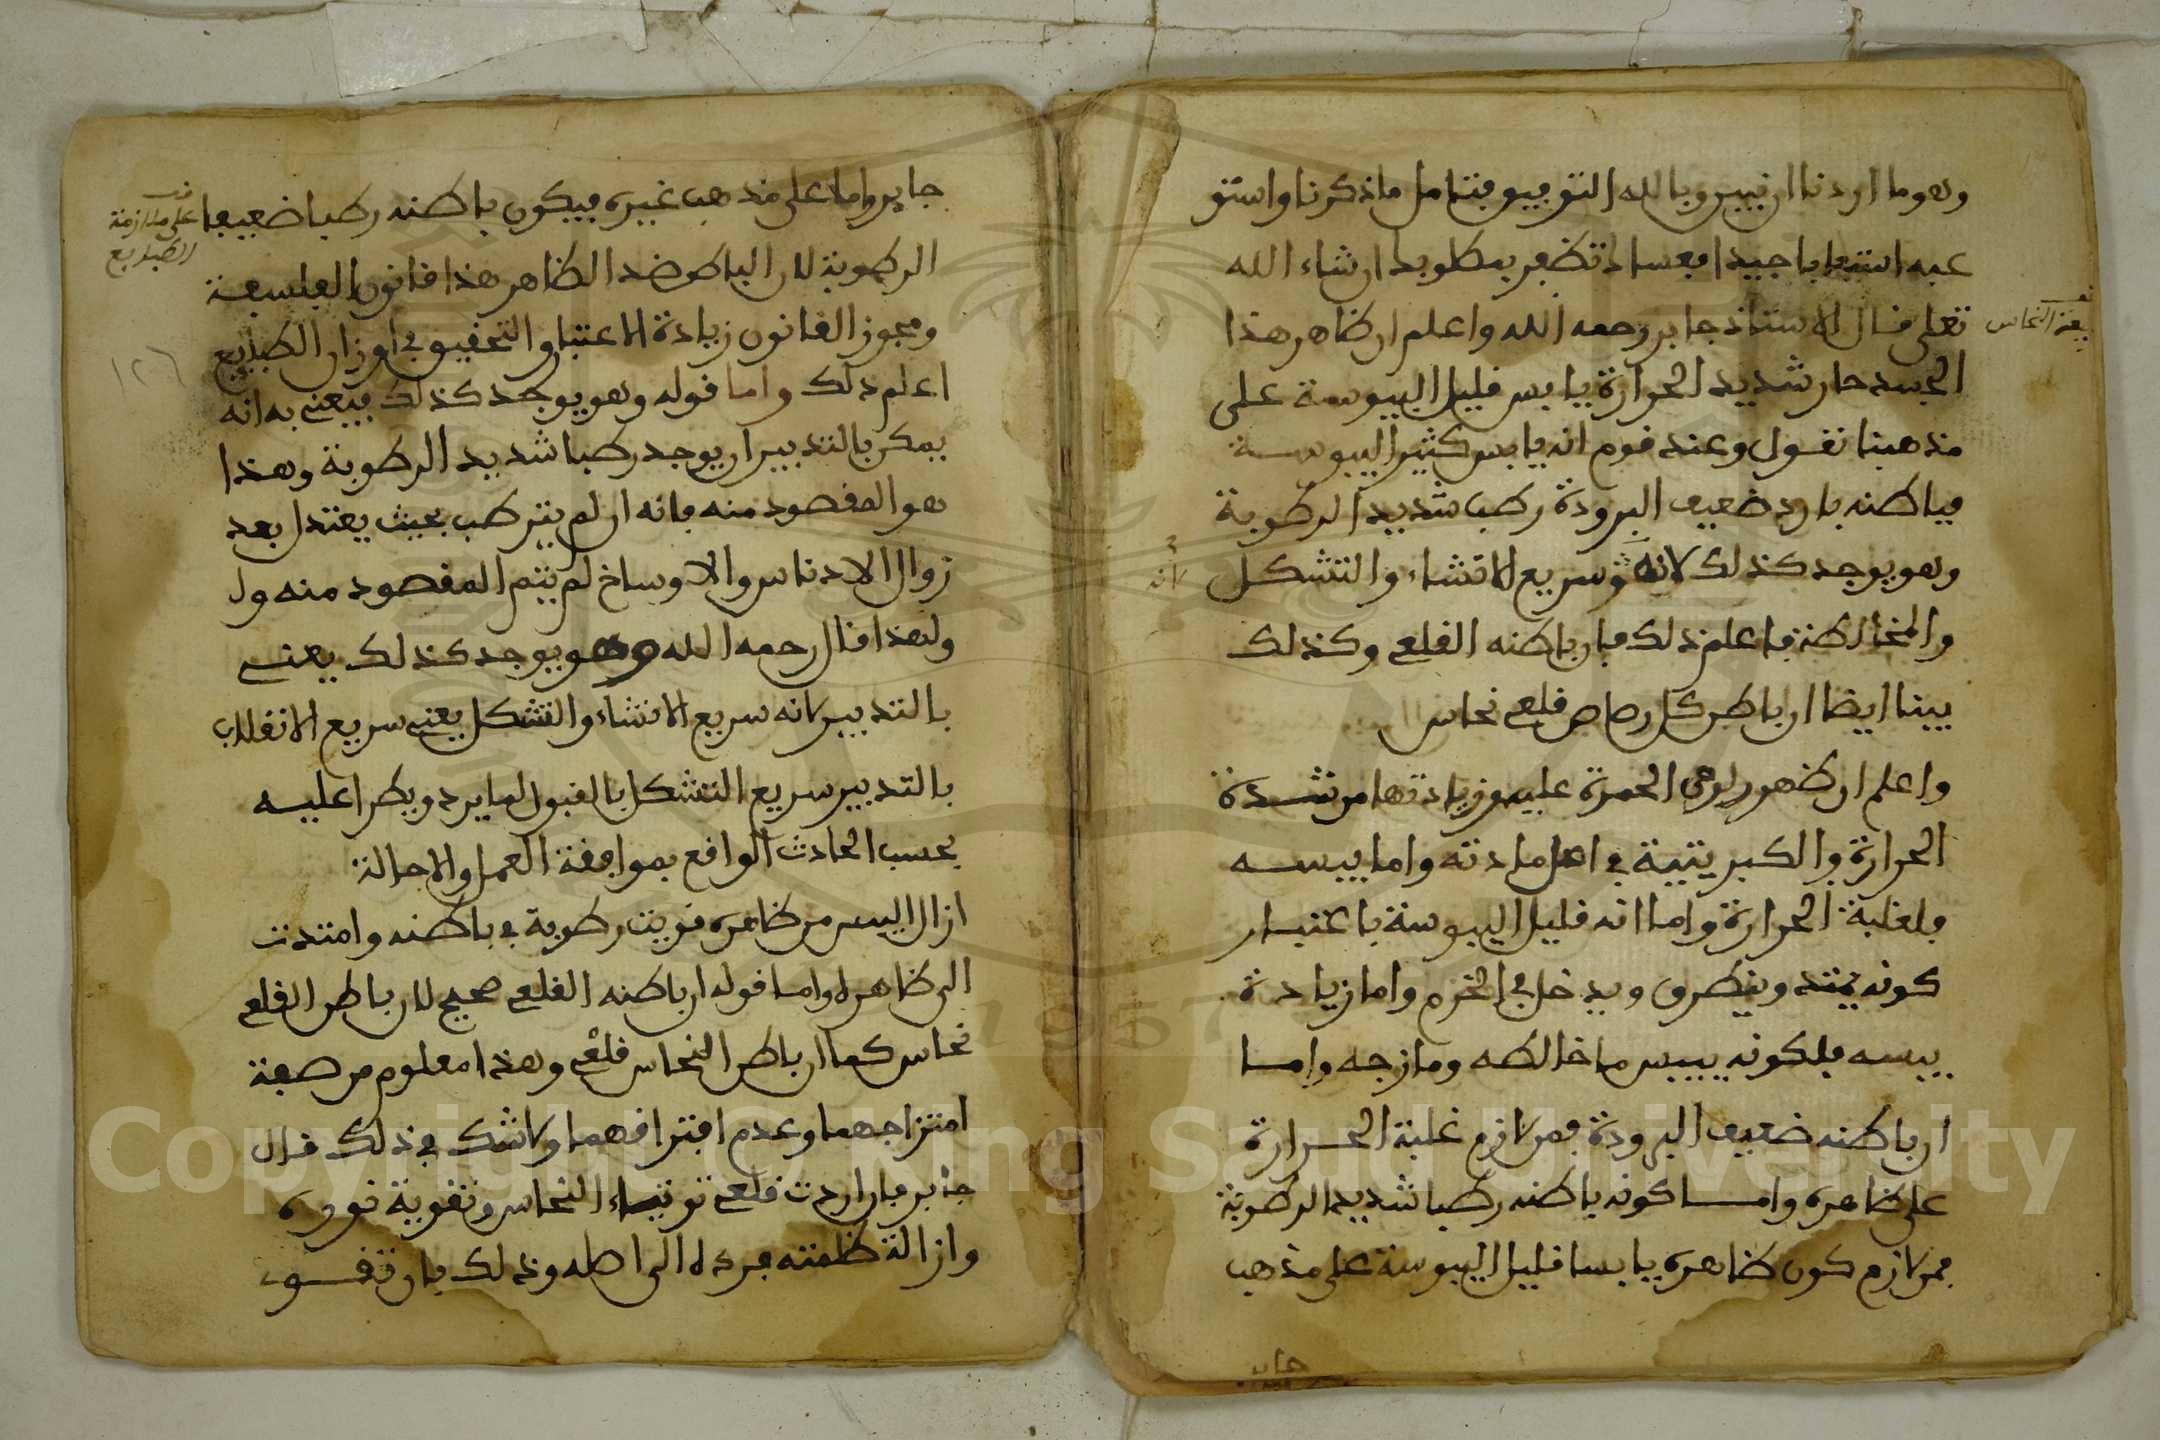 وهو ما اردنا ان نبين وبالله التوفيق فتامل ما ذكرنا واستو
عبه استيعابا جيدا فعساك تظفر بمطلوبك ان شاء الله
تعلى قال الاستاذ جابر رحمه الله واعلم ان ظاهر هذا
الجسد حار شديد الحرارة يابس قليل اليبوسة على
مذهبنا نقول وعند قوم انه يابس كثير اليبوسة
فباطنه بارد ضعيف البرودة رطب شديد الرطوبة
وهو يوجد كذلك لانه سريع الانتشاء والتشكل
والمخالطة فاعلم ذلك فان باطنه القلعي وكذلك
بينا ايضا ان باطن كل رصاص قلعي نحاس
واعلم ان ظهور لون الحمرة عليه وزيادتها من شدة
الحرارة والكبريتية في اصل مادته واما يبسه
فلغلبة الحرارة واما انه قليل اليبوسة باعتبار
كونه يمتد وينطرق ويدخل في الخرم واما زيادة
يبسه فلكونه ييبس ما خالطه ومازجه واما
ان باطنه ضعيف البرودة فمن لازم غلبة الحرارة
على ظاهره واما كونه باطنه رطبا شديد الرطوبة
فمن لازم كون ظاهره يابسا قليل اليبوسة على مذهب
صفة النحاس
لانه
جابر
جابر واما على مذهب غيره فيكون باطنه رطبا ضعيفا
الرطوبة لان الباطن ضد الظاهر هذا قانون الفلسفة
ويجوز القانون زيادة الاعتبار والتحقيق في اوزان الطبايع
اعلم ذلك واما قوله وهو يوجد كذلك فيعني به انه
يمكن بالتدبير ان يوجد رطبا شديد الرطوبة وهذا
هو المقصود منه فانه ان لم يترطب بحيث يعتدل بعد
زوال الادناس والاوساخ لم يتم المقصود منه ول
ولهذا قال رحمه الله وهو يوجد كذلك يعني
بالتدبير لانه سريع الانتشاء والتشكل يعني سريع الانقلاب
بالتدبير سريع التشكل بالقبول لما يرد ويطرا عليه
بحسب الحادث الواقع بموافقة العمل والاحالة
ازال اليبس من ظاهره قويت رطوبة في باطنه وامتدت
الى ظاهره واما قوله ان باطنه القلعي صحيح لان باطن القلعي
نحاس كما ان باطن النحاس قلعي وهذا معلوم من صفة
امتزاجهما وعدم افتراقهما ولا شك في ذلك قال
جابر فان اردت قلعي توتياء النحاس وتقوية نوره
وازالة ظلمته فرده الى اصله وذلك بان تقو
قف
على ملازمة
الطبايع
١٢٦
Copyright © King Saud University
1957